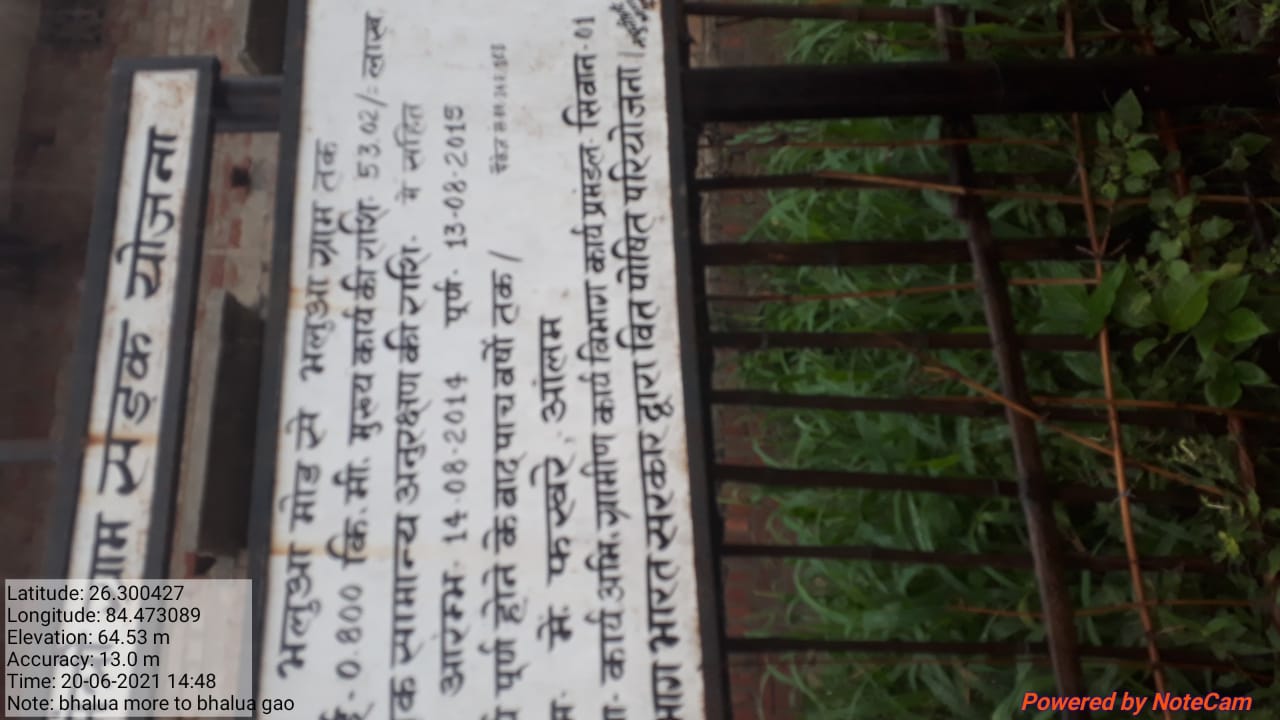 ग्राम सड़क योजना
भलुआ मोड से भलुआ ग्राम तक
- 0.800 कि.मी. मुख्य कार्य की राशि- 53.02/= लाख
क सामान्य अनुरक्षण की राशि- में सहित
आरंम्भ- 14-08-2014 पूर्ण- 13-08-2015
पूर्ण होने के बाद पाच वर्षो तक /
में. फखरे आलम
कार्य अभि. ग्रामीण कार्य विभाग कार्य प्रमंडल- सिवान-01
भारत सरकार द्वारा वित पोषित परियोजना /
Latitude: 26.300427
Longitude: 84.473089
Elevation: 64.53 m
Accuracy: 13.0 m
Time: 20-06-2021 14:48
Note: bhalua more to bhalua gao
Powered by NoteCam